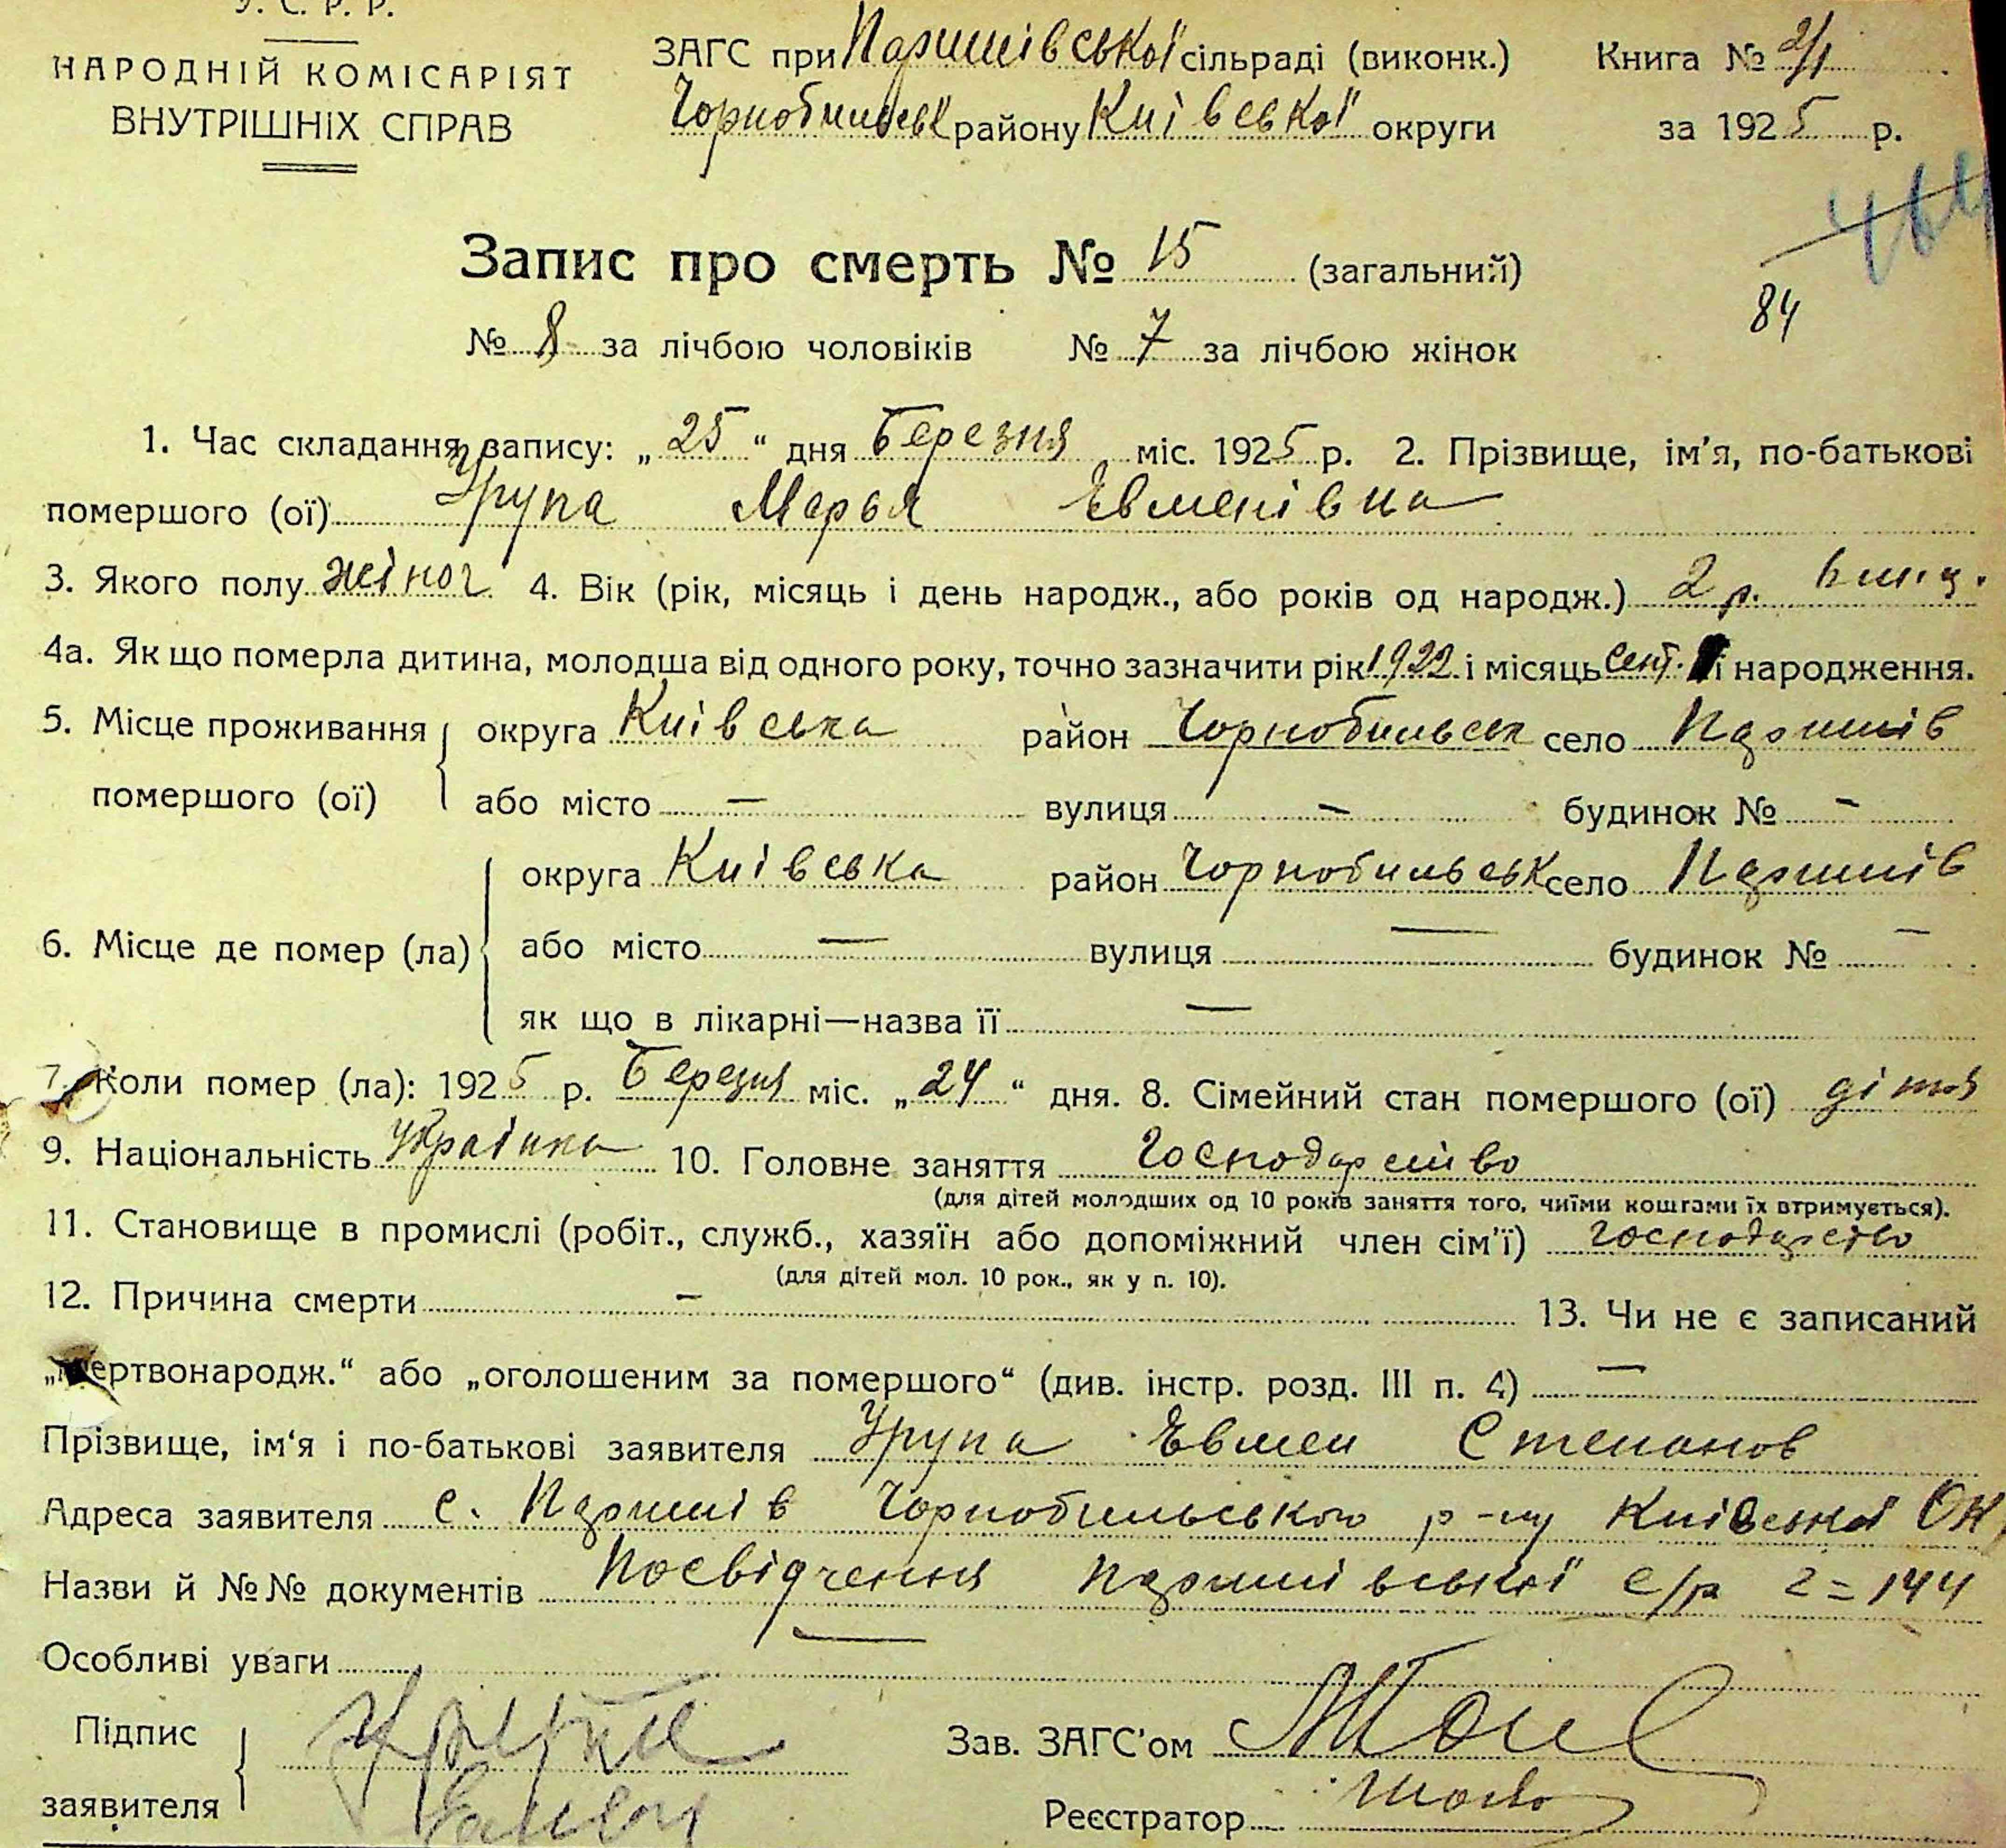 У. С. Р. Р.
НАРОДНІЙ КОМІСАРІЯТ
ВНУТРІШНІХ СПРАВ
ЗАГС при Паришівської сільраді (виконк.)
Чорнобильськ району Київської округи
Книга № 2/1
за 1925 р.
Запис про смерть № 15 (загальний)
84
№ 8 за лічбою чоловіків № 7 за лічбою жінок
1. Час складання запису: „25“ дня Березня міс. 1925 р. 2. Прізвище, ім'я, по-батькові
помершого (ої) Урупа Марья Евменівна
3. Якого полу жіноч 4. Вік (рік, місяць і день народж., або років од народж.) 2 р. 6
4а. Як що померла дитина, молодша від одного року, точно зазначити рік 1922 і місяць Сент. її народження.
5. Місце проживання округа Київська район Чорнобильськ село Паришів
помершого (ої) або місто — вулиця — будинок № -
округа Київська район Чорнобильськ село Паришів
6. Місце де помер (ла) або місто — вулиця — будинок № —
як що в лікарні—назва її —
7. Коли помер (ла): 1925 р. Березня міс. „24“ дня. 8. Сімейний стан помершого (ої) дітя
9. Національність Українка 10. Головне заняття Господарство
(для дітей молодших од 10 років заняття того, чиїми коштами їх втримується).
11. Становище в промислі (робіт., служб., хазяїн або допоміжний член сім'ї) господарство
(для дітей мол. 10 рок., як у п. 10).
12. Причина смерти - 13. Чи не є записаний
„мертвонародж.“ або „оголошеним за помершого“ (див. інстр. розд. III п. 4) —
Прізвище, ім'я і по-батькові заявителя Урупа Евмен Степанов
Адреса заявителя с. Паришів Чорнобильського р-ну Київської Ок.
Назви й №№ документів Посвідчення Паришівської с/р 144
Особливі уваги —
Підпис
заявителя Урупа
Зав. ЗАГС'ом
Реєстратор